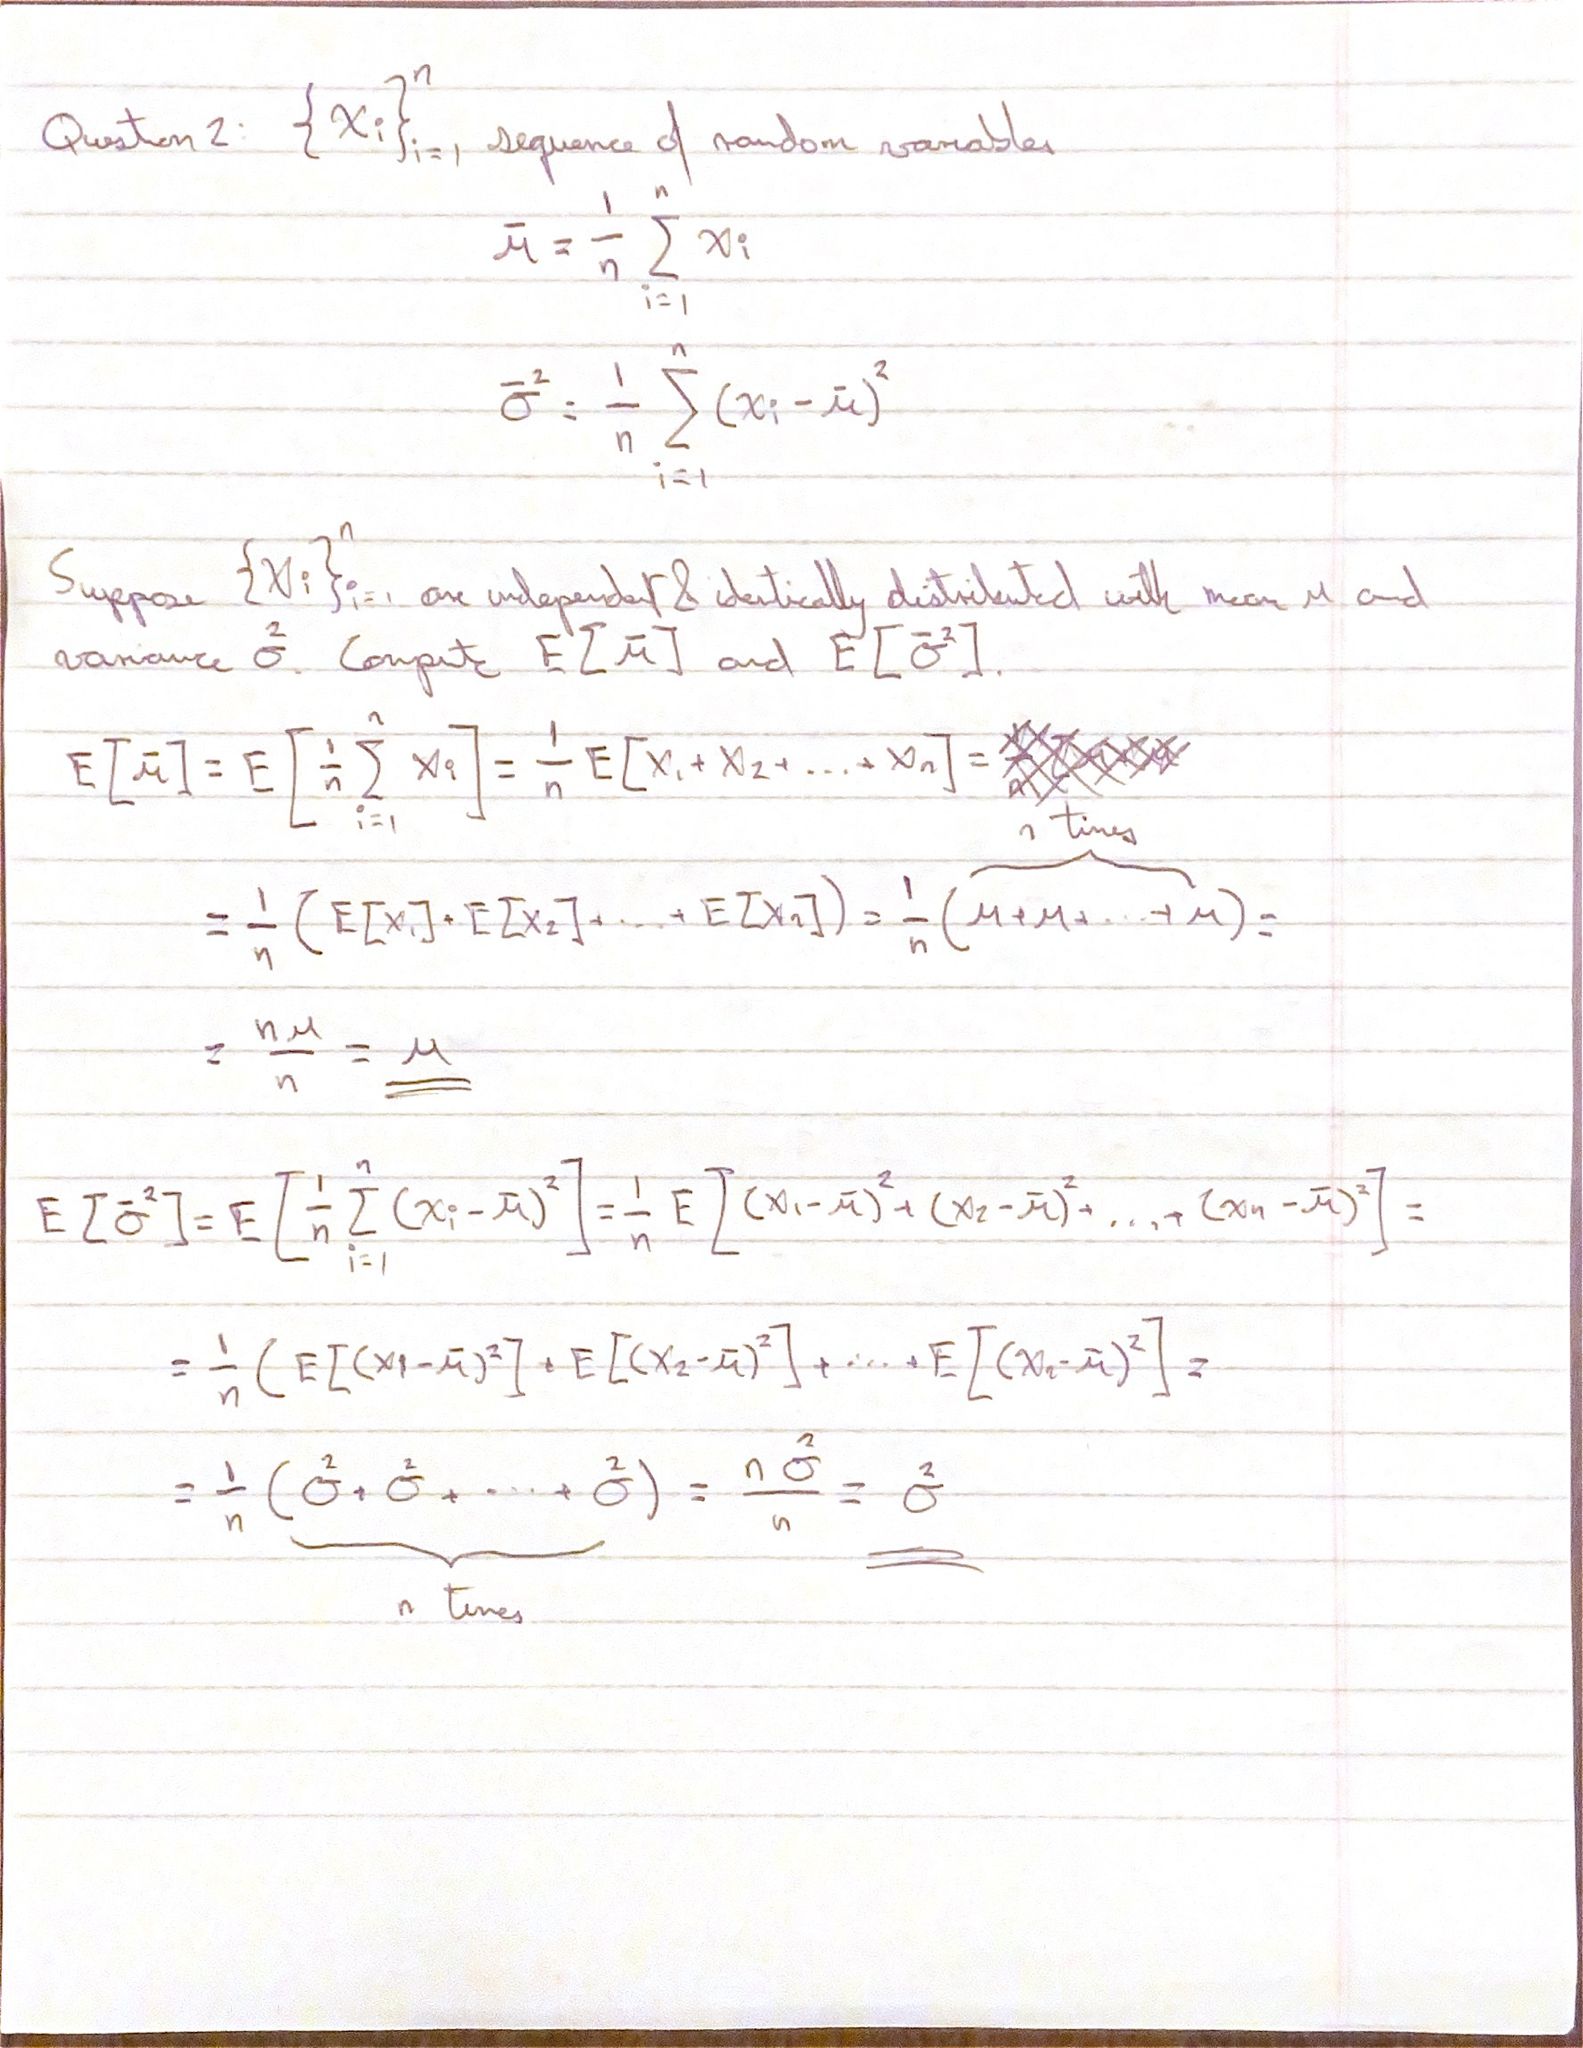 Question 2: {x_i}_{i=1}^n sequence of random variables
μ̄ = 1/n ∑_{i=1}^n x_i
σ̄² = 1/n ∑_{i=1}^n (x_i - μ̄)²
Suppose {x_i}_{i=1}^n are independent & identically distributed with mean μ and
variance σ². Compute E[μ̄] and E[σ̄²].
E[μ̄] = E[1/n ∑_{i=1}^n x_i] = 1/n E[x_1 + x_2 + ... + x_n] =
n times
= 1/n (E[x_1] + E[x_2] + ... + E[x_n]) = 1/n (μ + μ + ... + μ) =
= nμ/n = μ
E[σ̄²] = E[1/n ∑_{i=1}^n (x_i - μ̄)²] = 1/n E[(x_1 - μ̄)² + (x_2 - μ̄)² + ... + (x_n - μ̄)²] =
= 1/n (E[(x_1 - μ̄)²] + E[(x_2 - μ̄)²] + ... + E[(x_n - μ̄)²] =
= 1/n (σ² + σ² + ... + σ²) = nσ²/n = σ²
n times